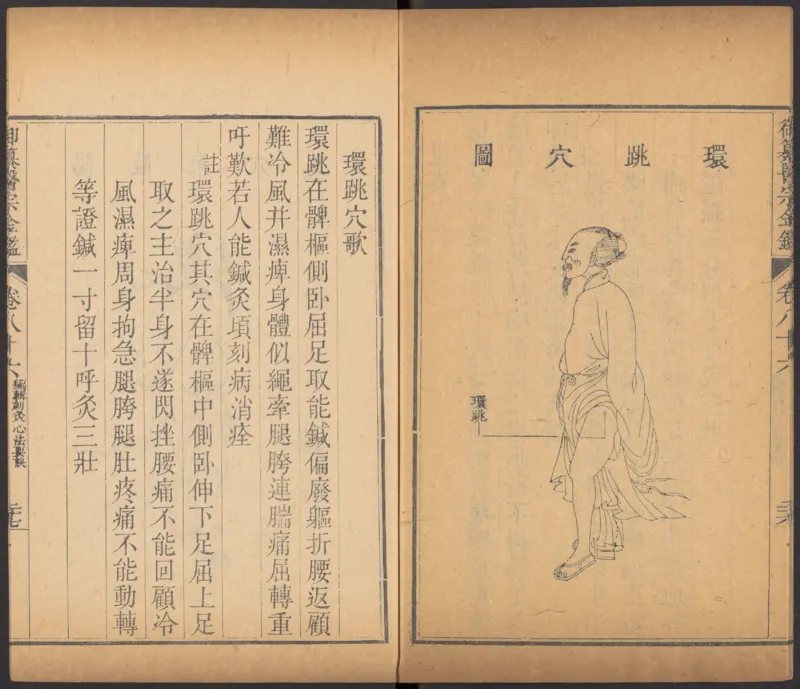 御纂醫宗金鑑
卷八十六
環跳穴圖
環跳
環跳穴歌
環跳在髀樞側卧屈足取能鍼偏廢軀折腰返顧
難冷風并濕痺身體似繩牽腿胯連腨痛屈轉重
吁歎若人能鍼灸頃刻病消痊
註環跳穴其穴在髀樞中側卧伸下足屈上足
取之主治半身不遂閃挫腰痛不能回顧冷
風濕痺周身拘急腿胯腿肚疼痛不能動轉
等證鍼一寸留十呼灸三壯
御纂醫宗金鑑
卷八十六
編輯刺灸心法要訣
二七